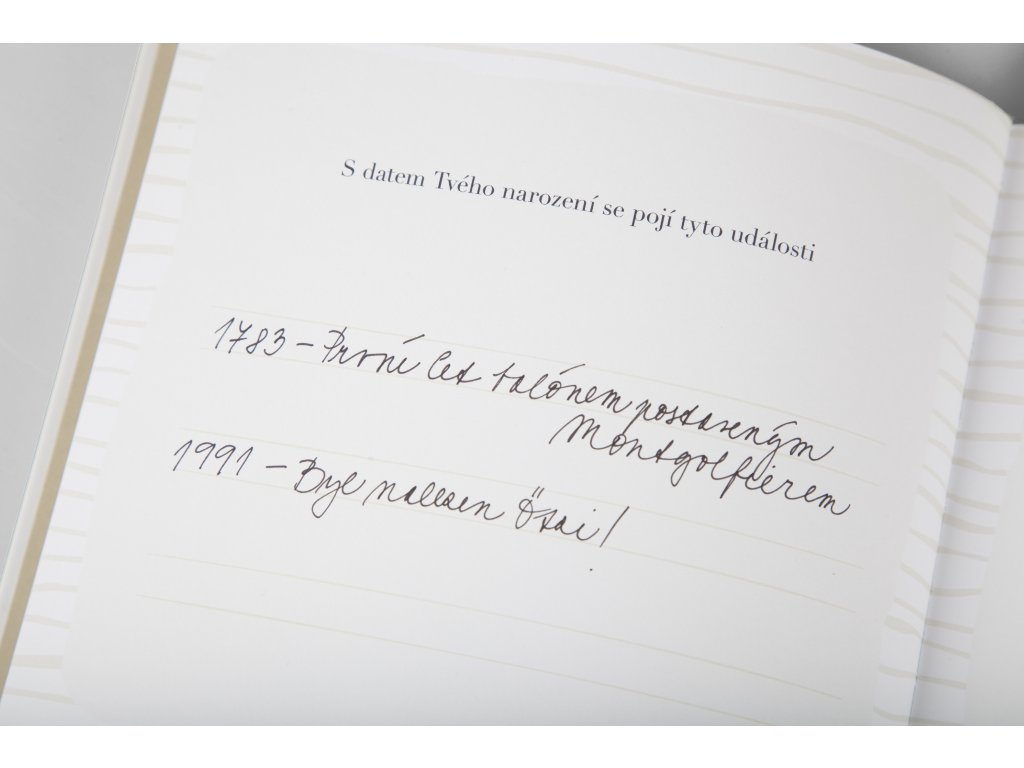 S datem Tvého narození se pojí tyto události
1783 – První let balónem postaveným
Montgolfierem
1991 – Byl nalezen Ötzi!